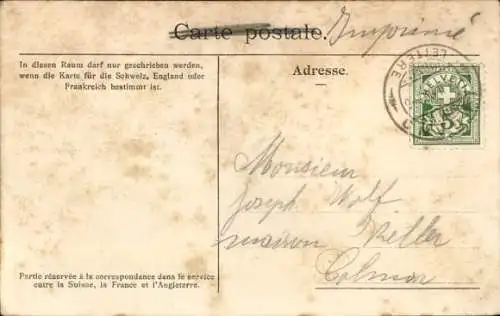 Carte postale. Imprimé
In diesen Raum darf nur geschrieben werden,
wenn die Karte für die Schweiz, England oder
Frankreich bestimmt ist.
Adresse.
HELVETIA
Monsieur
Joseph Wolf
maison Keller
Colmar
Partie réservée à la correspondance dans le service
entre la Suisse, la France et l'Angleterre.